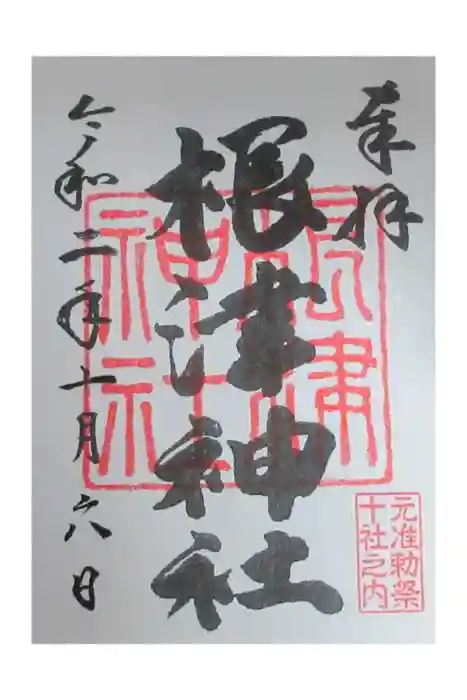 奉拝
根津神社
根津神社
元准勅祭
十社之内
令和二年十月六日